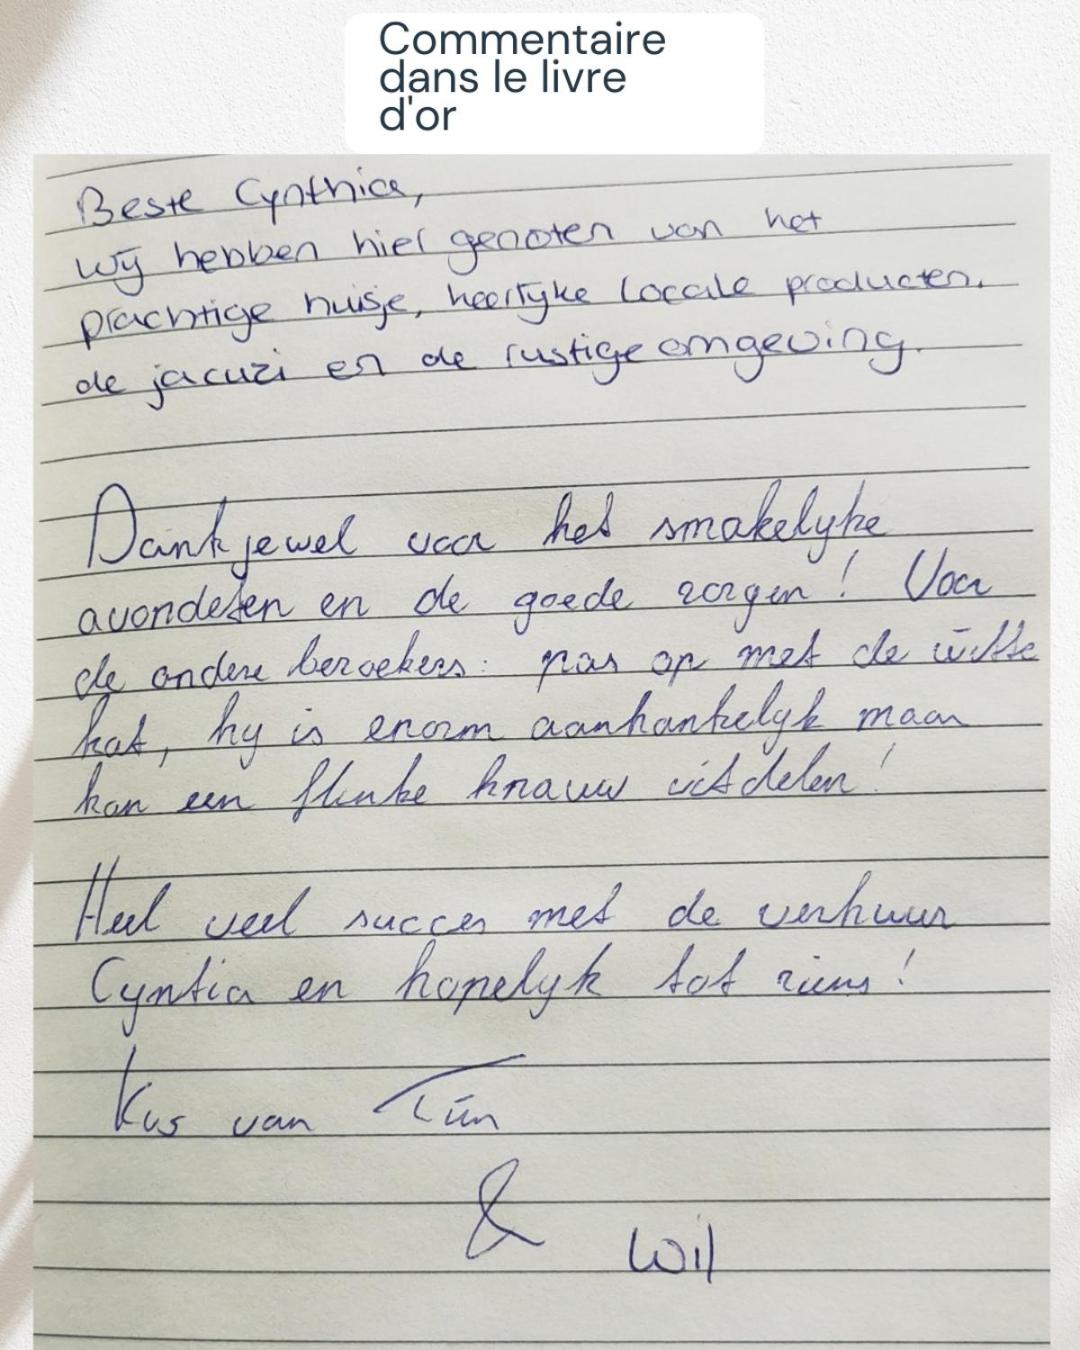 Commentaire
dans le livre
d'or
Beste Cynthia,
wij hebben hier genoten van het
prachtige huisje, heerlyke locale producten,
de jacuzi en de rustige omgeving.
Dankjewel voor het smakelyke
avondeten en de goede zorgen! Voor
de andere bezoekers: pas op met de witte
kat, hy is enorm aanhankelyk maar
kan een flinke knauw uitdelen!
Heel veel succes met de verhuur
Cyntia en hopelyk tot ziens!
Kus van
&
Wil